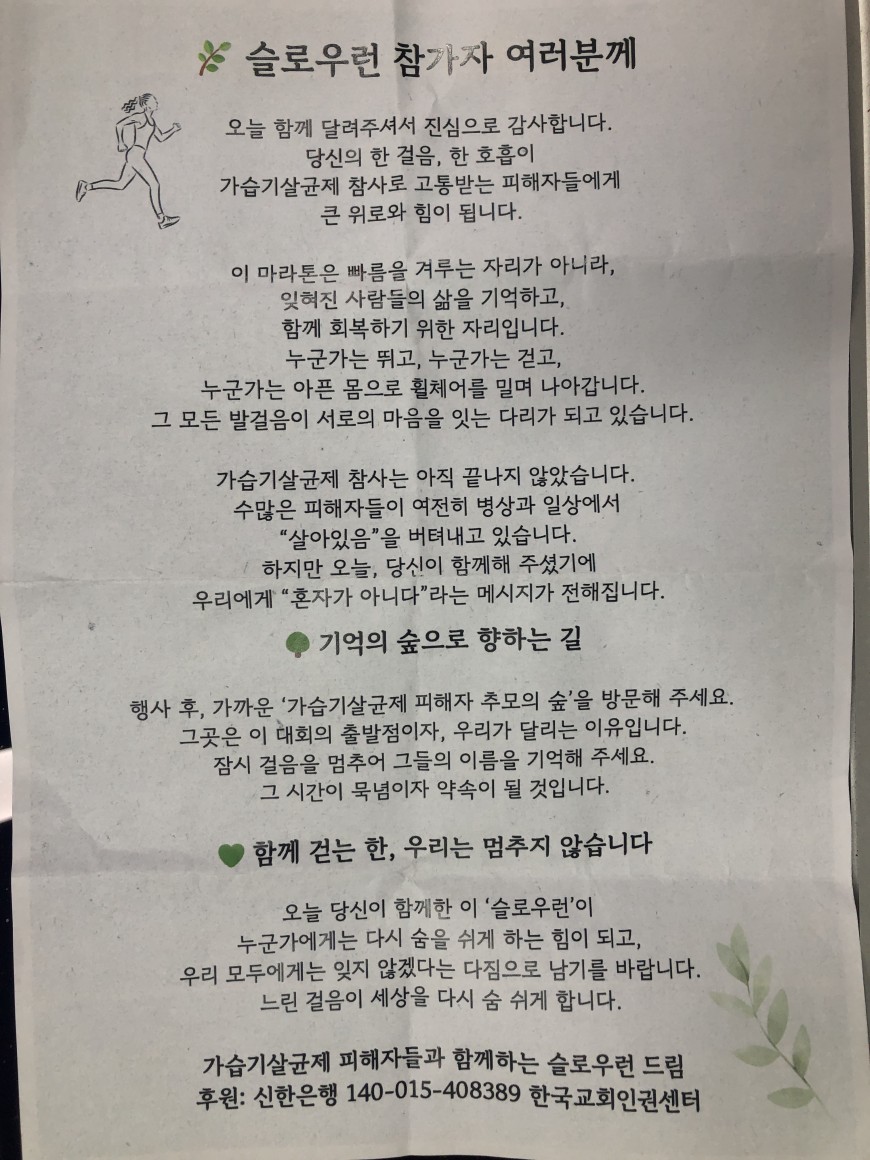 슬로우런 참가자 여러분께
오늘 함께 달려주셔서 진심으로 감사합니다.
당신의 한 걸음, 한 호흡이
가습기살균제 참사로 고통받는 피해자들에게
큰 위로와 힘이 됩니다.
이 마라톤은 빠름을 겨루는 자리가 아니라,
잊혀진 사람들의 삶을 기억하고,
함께 회복하기 위한 자리입니다.
누군가는 뛰고, 누군가는 걷고,
누군가는 아픈 몸으로 휠체어를 밀며 나아갑니다.
그 모든 발걸음이 서로의 마음을 잇는 다리가 되고 있습니다.
가습기살균제 참사는 아직 끝나지 않았습니다.
수많은 피해자들이 여전히 병상과 일상에서
“살아있음”을 버텨내고 있습니다.
하지만 오늘, 당신이 함께해 주셨기에
우리에게 “혼자가 아니다”라는 메시지가 전해집니다.
기억의 숲으로 향하는 길
행사 후, 가까운 ‘가습기살균제 피해자 추모의 숲’을 방문해 주세요.
그곳은 이 대회의 출발점이자, 우리가 달리는 이유입니다.
잠시 걸음을 멈추어 그들의 이름을 기억해 주세요.
그 시간이 묵념이자 약속이 될 것입니다.
함께 걷는 한, 우리는 멈추지 않습니다
오늘 당신이 함께한 이 ‘슬로우런’이
누군가에게는 다시 숨을 쉬게 하는 힘이 되고,
우리 모두에게는 잊지 않겠다는 다짐으로 남기를 바랍니다.
느린 걸음이 세상을 다시 숨 쉬게 합니다.
가습기살균제 피해자들과 함께하는 슬로우런 드림
후원: 신한은행 140-015-408389 한국교회인권센터